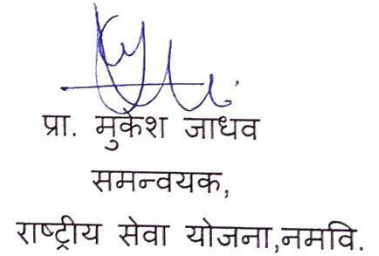 प्रा. मुकेश जाधव
समन्वयक,
राष्ट्रीय सेवा योजना,नमवि.